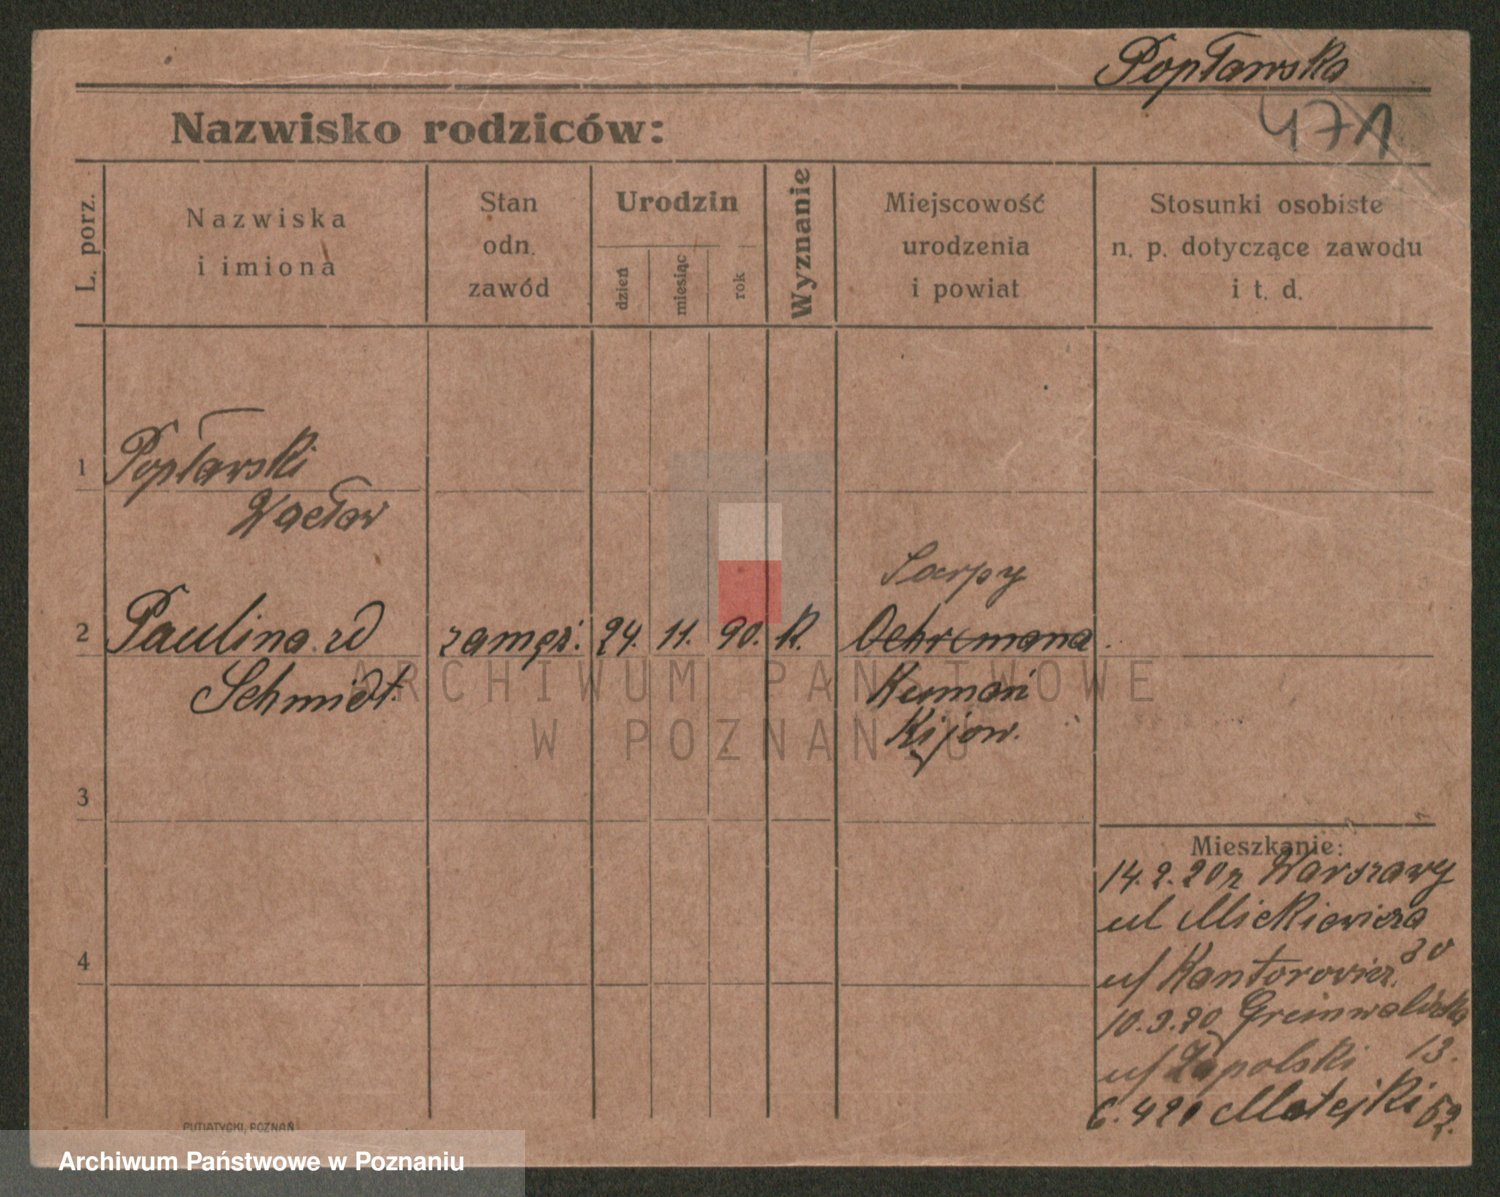 Popławska
471
Nazwisko rodziców:
L. porz.
Nazwiska
i imiona
Stan
odn.
zawód
Urodzin
dzień
miesiąc
rok
Wyznanie
Miejscowość
urodzenia
i powiat
Stosunki osobiste
n. p. dotyczące zawodu
i t. d.
1
Popławski
Wacław
2
Paulina zd
Schmidt
zamęż.
24. 11. 90. K.
Sarpy
Ochremana
Kumań
Kijow.
3
4
Mieszkanie:
14.2.20 z Warszawy
ul Mickiewicza
30
u/ Kantorowicz
10.3.20 Greinwaldzka
13.
u/ Zapolski
6.420 Matejki 52.
PUTIATYCKI, POZNAŃ
ARCHIWUM PAŃSTWOWE
W POZNANIU
Archiwum Państwowe w Poznaniu